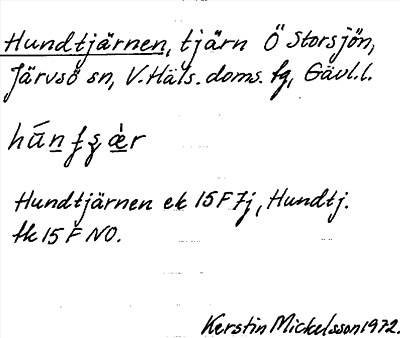 Hundtjärnen, tjärn Ö Storsjön,
Järvsö sn, V. Häls. doms. fg, Gävl. l.
Hundtjärnen ek 15F7j, Hundtj.
tk 15 F NO.
Kerstin Mickelsson 1972.